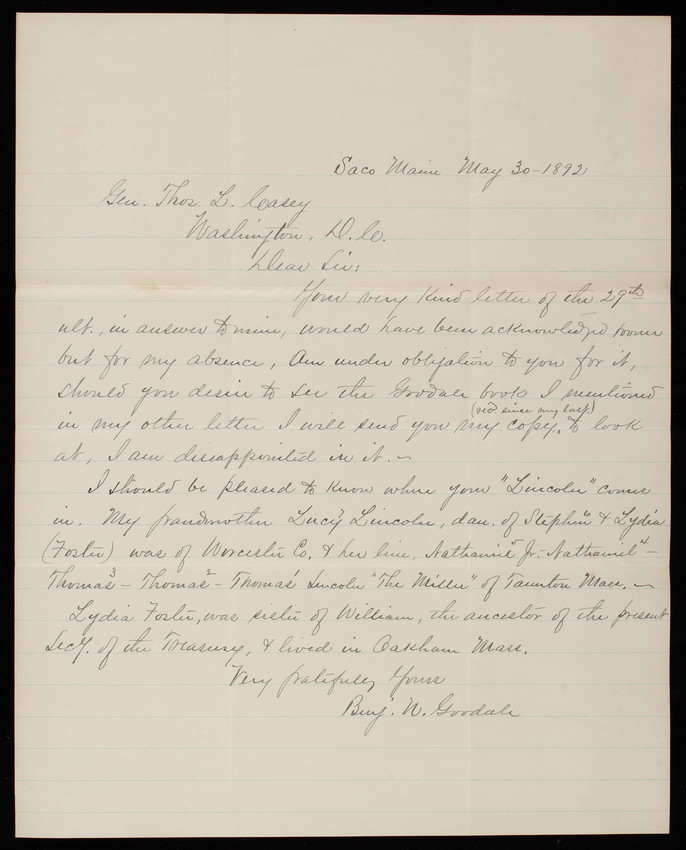 Saco Maine May 30 - 1892
Gen. Thos. L. Casey
Washington, D. C.
Dear Sir;
Your very kind letter of the 29th
ult., in answer to mine, would have been acknowledged sooner
but for my absence, Am under obligation to you for it,
should you desire to see the Goodale book I mentioned
(recd. since my last)
in my other letter I will send you my copy, to look
at, I am disappointed in it. ~
I should be pleased to know where your "Lincoln" comes
in. My grandmother Lucy Lincoln, dau. of Stephen & Lydia
(Foster) was of Worcester Co. & her line, Nathaniel5 Jr. - Nathaniel4 -
Thomas3 - Thomas2 - Thomas1 Lincoln "The Miller" of Taunton Mass. ~
Lydia Foster, was sister of William, the ancestor of the present
Secy. of the Treasury, & lived in Oakham Mass.
Very gratefully Yours
Benj. N. Goodale